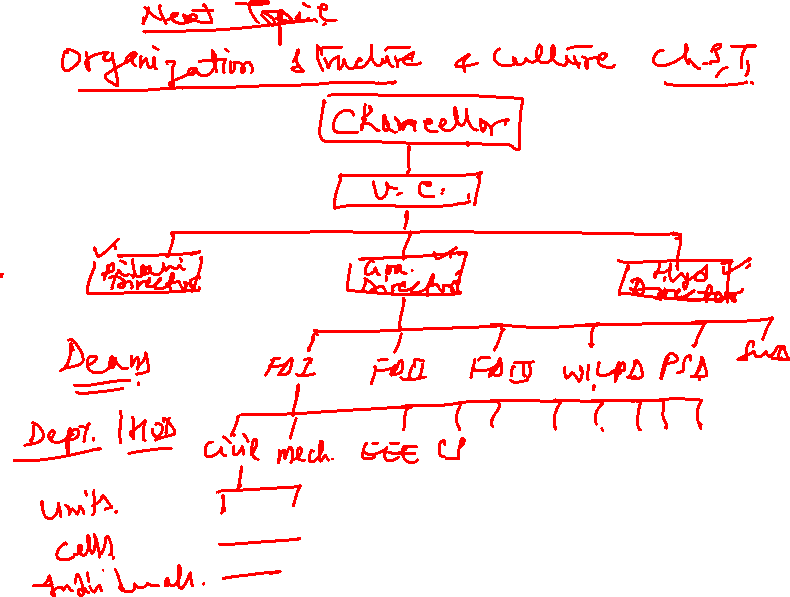 Next Topic
Organization structure & Culture Ch-5, T1
Chancellor
V. C.
Pilani Director
Goa Director
Hyd Director
Deans
FDI FDII FDIII WILPD PSD SWD
Dept. / HOD
Civil Mech. EEE CS
Units.
Cells
Individuals.